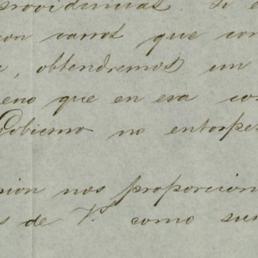 providencias. Si e
con carros que con
, obtendremos un
eno que en esa co
Gobierno no entorpe
nion nos proporcion
s de V. como su